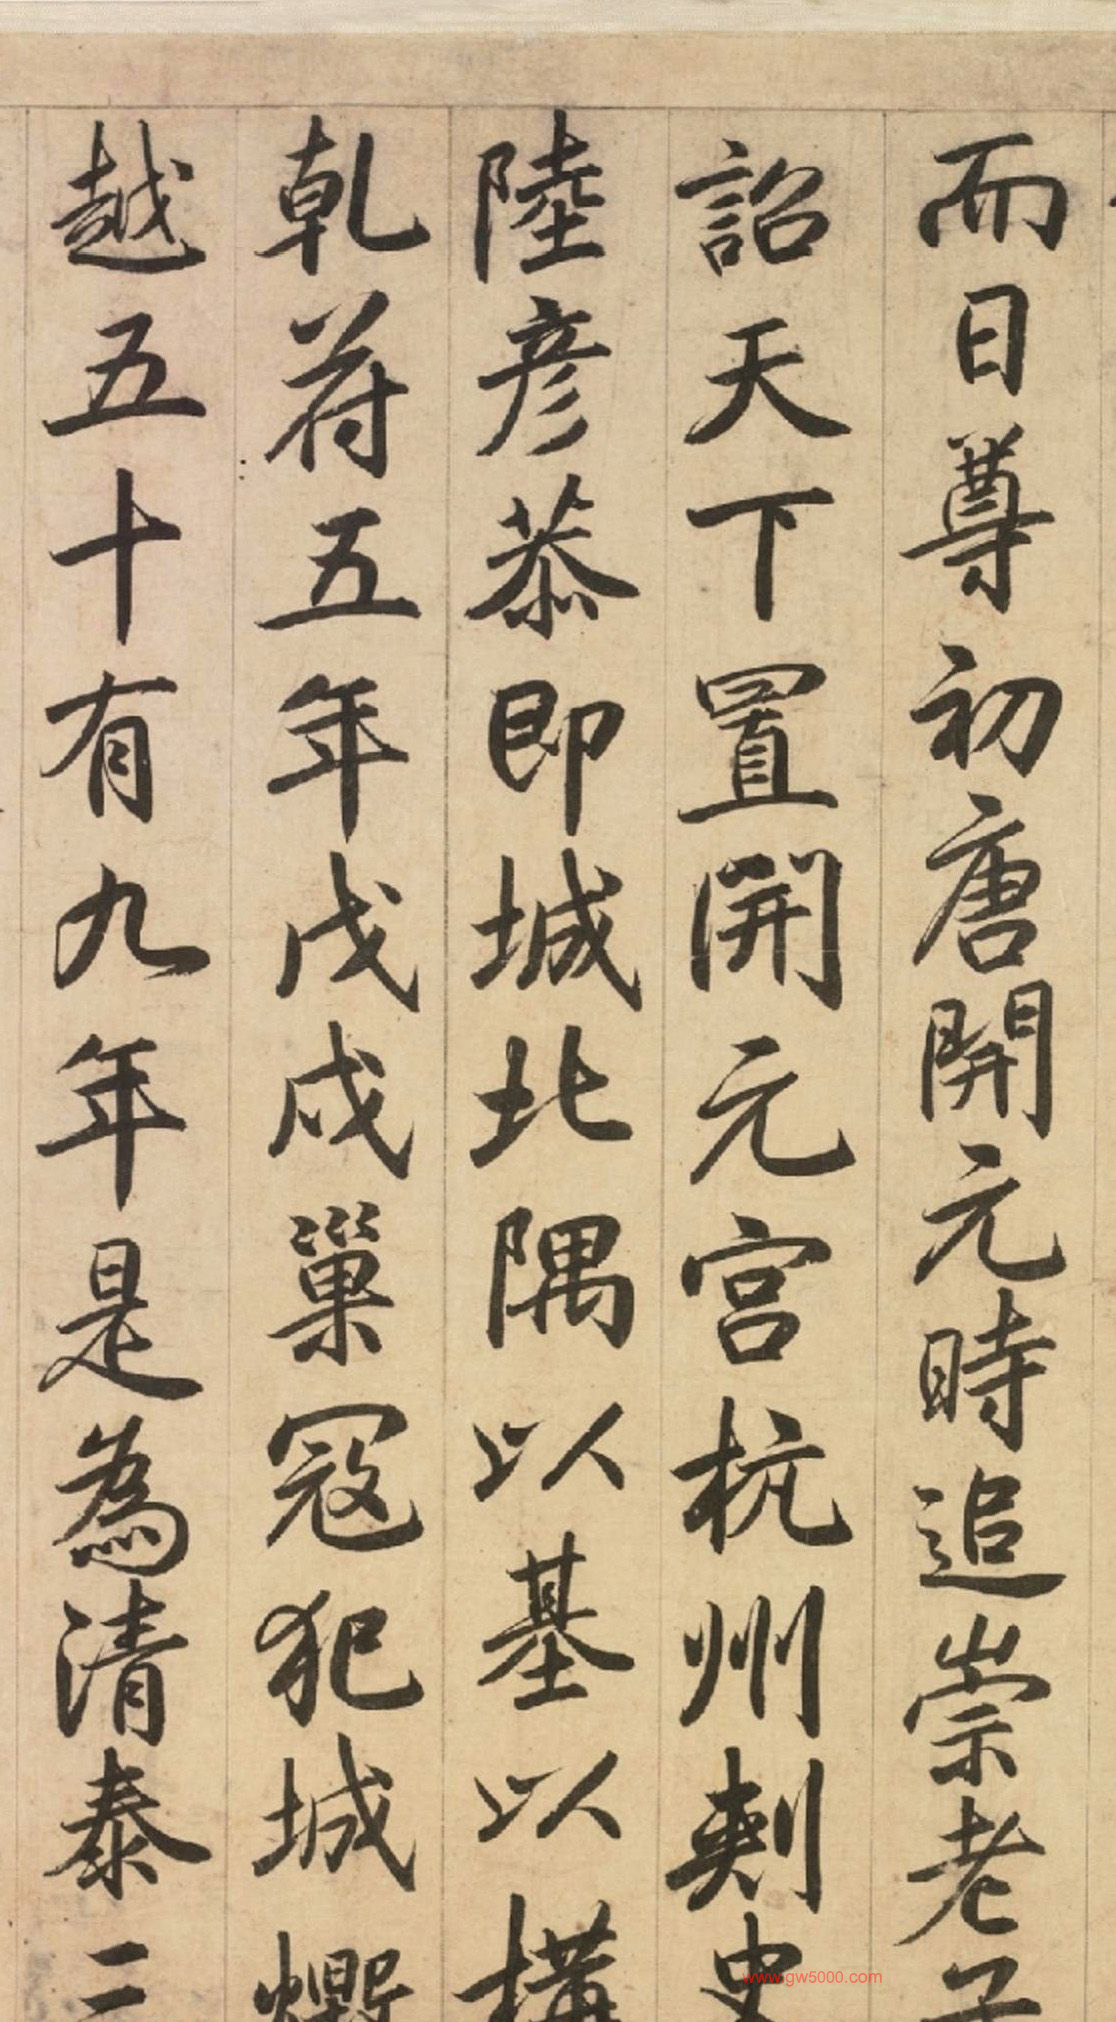 而日尊初唐開元時追崇老子
詔天下置開元宮杭州刺史
陸彦恭即城北隅以基以構
乾符五年戊戌巢冦犯城
越五十有九年是為清泰二
www.gw5000.com